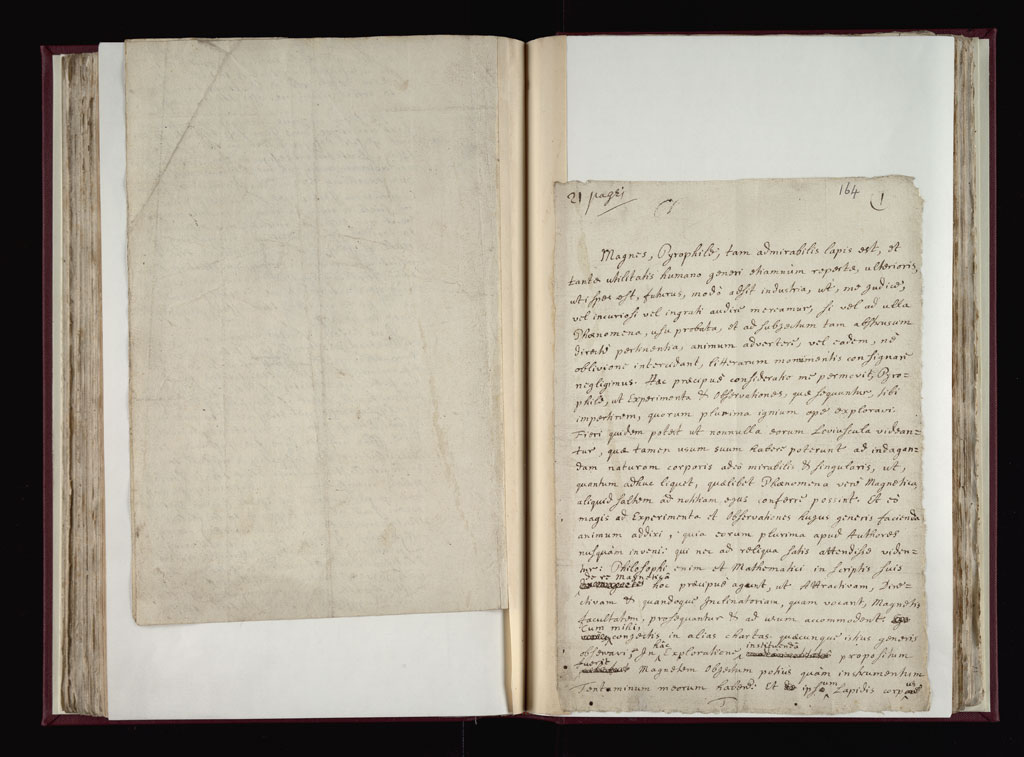 21 pages
164
1
Magnes, Pyrophile, tam admirabilis lapis est, et
tantæ utilitatis humano generi etiamnum repertæ, ulterioris,
uti spes est, futurus, modò absit industria, ut, me Judice,
vel incuriosi vel ingrati audire mereamur, si vel ad ulla
Phænomena, usu probata, et ad subjectum tam abstrusum
directè pertinentia, animum advertere, vel eadem, nè
oblivione intercidant, litterarum monimentis consignare
negligimus. Hæc præcipuè consideratio me permovit, Pyro-
phile, ut Experimenta & Observationes, quæ sequuntur, tibi
impertirem, quorum plurima ignium ope exploravi.
Fieri quidem potest ut nonnulla eorum Leviuscula videan=
tur, quæ tamen usum suum habere poterunt ad indagan=
dam naturam corporis adeò mirabilis & singularis, ut,
quantum adhuc liquet, quælibet Phænomena verè Magnetica
aliquid saltem ad notitiam ejus conferre possint. Et eò
magis ad Experimenta et Observationes hujus generis facienda
animum addixi, quia eorum plurima apud Authores
nusquàm inveni: qui nec ad reliqua satis attendisse viden-
tur: Philosophi enim et Mathematici in scriptis suis
de re magneticâ
hoc præcipuè agunt, ut Attractivam, Dire=
ctivam & quandoque Inclinatoriam, quam vocant, Magnetis
facultatem, prosequantur & ad usum accommodent:
Cum mihi
conjectis in alias chartas quæcunque istius generis
observavi, In hâc Exploratione instituendâ propositum
fuerit Magnetem Objectum potiùs quàm instrumentum
Tentaminum meorum habere: Et ipsum Lapidis corpus